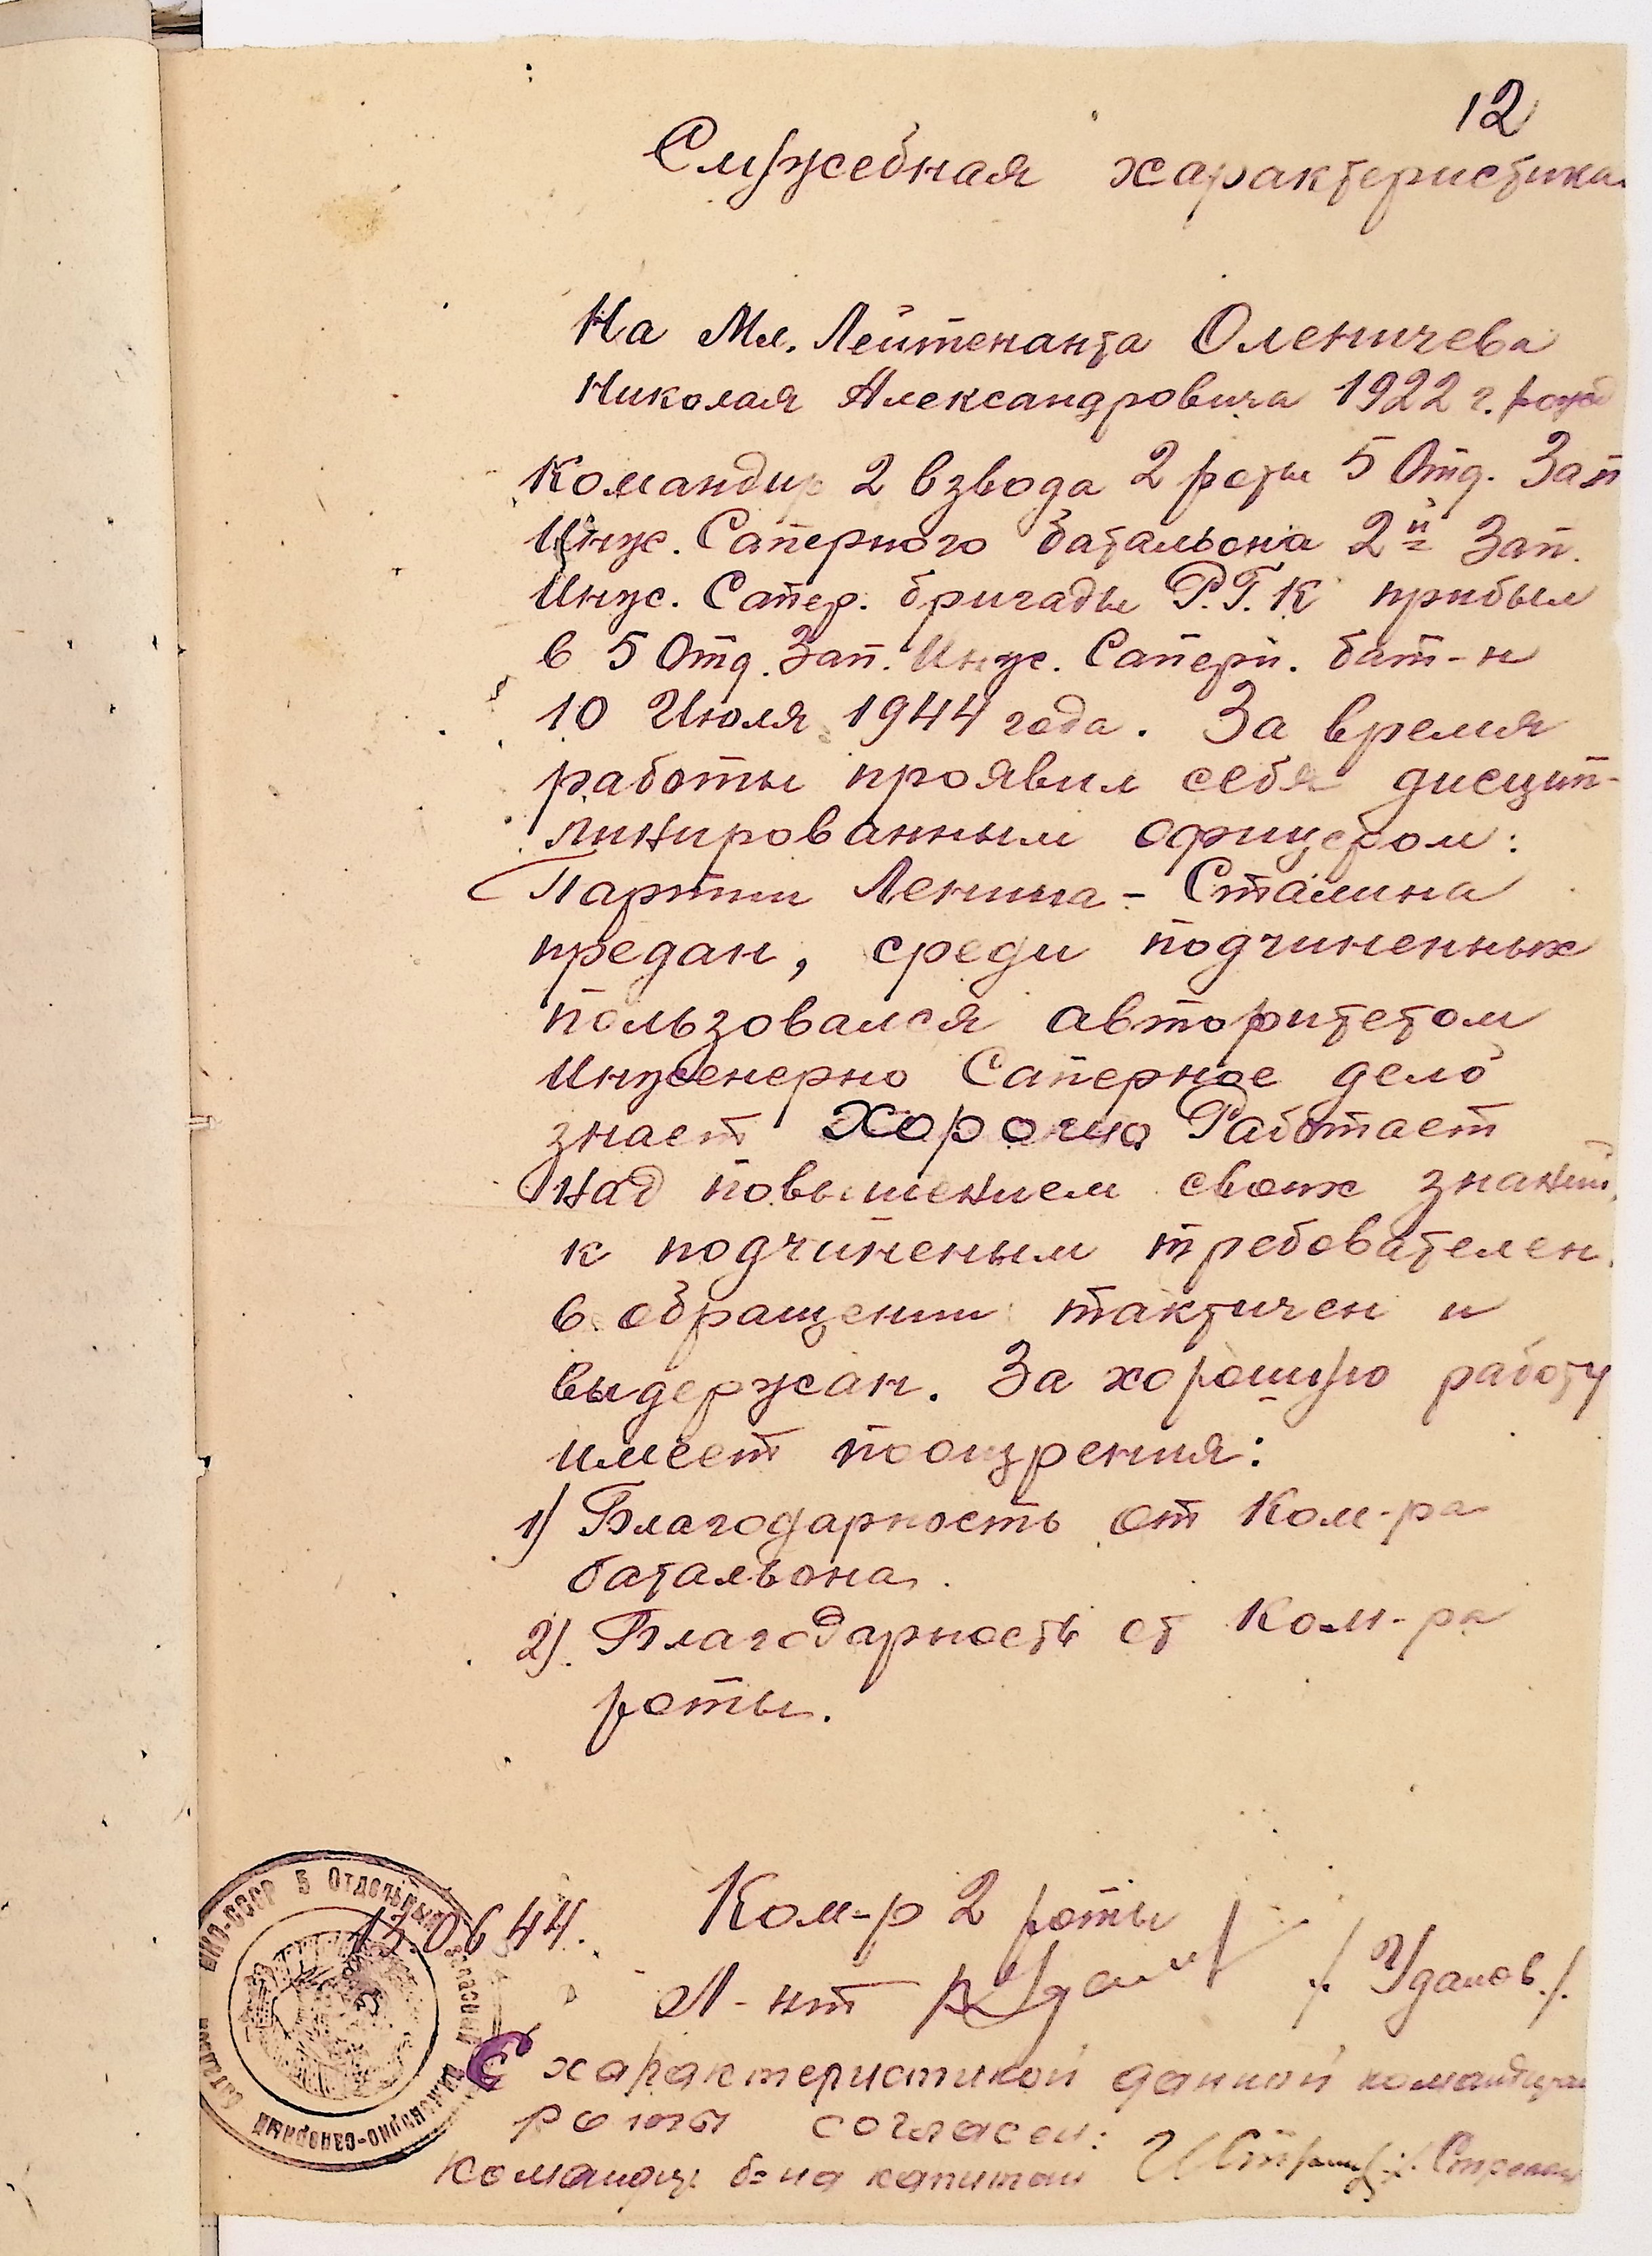 12
Служебная характеристика
На Мл. Лейтенанта Оленичева
Николая Александровича 1922 г. рожд
Командир 2 взвода 2 роты 5 Отд. Зап
Инж. Саперного батальона 2й Зап.
Инж. Сапер. бригады Р.Г.К прибыл
в 5 Отд. Зап. Инж. Саперн. бат-н
10 Июля 1944 года. За время
работы проявил себя дисцип-
линированным офицером:
Партии Ленина - Сталина
предан, среди подчиненных
пользовался авторитетом
Инженерно Саперное дело
знает Хорошо Работает
над повышением своих знаний,
к подчиненым требователен.
в обращении тактичен и
выдержан. За хорошую работу
имеет поощрения:
1) Благодарность от Ком-ра
батальона.
2) Благодарность от Ком-ра
роты.
Ком-р 2 роты
13.06 44.
Л-нт /Удалов./
С характеристикой данной командиром
роты согласен:
Командир б-на капитан
НКО-СССР 5 Отдельный запасный инженерно-саперный батальон